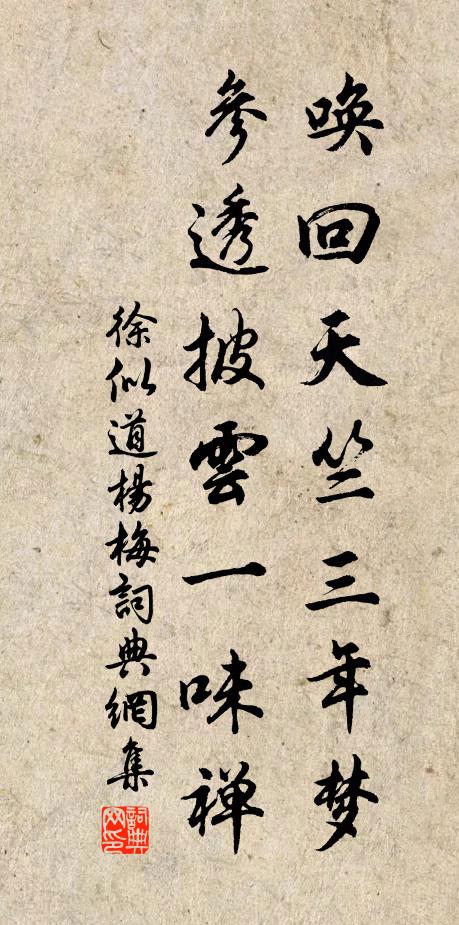 喚回天竺三年梦
参透披雲一味禅
徐似道楊梅詞典網集
詞典网印